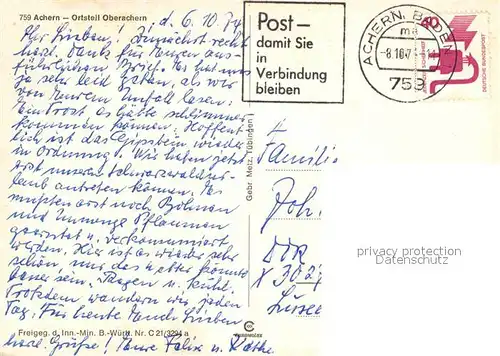 759 Achern — Ortsteil Oberachern
d. 6. 10. 74
Ihr Lieben! Zunächst recht
herzl. Dank für Euren aus-
führlichen Brief. Es hat uns
ja sehr leid getan, als wir
von Eurem Unfall lasen.
Ein Trost, es hätte schlimmer
kommen können. Hoffent-
lich ist das Gipsbein wieder
in Ordnung! Wir haben jetzt
erst unseren Schwarzwaldur-
laub antreten können. Es
mußten erst noch Bohnen
und Pflaumen
geerntet u.
werden. Hier ist es wieder sehr
schön, nur das Wetter könnte
besser sein. Regen u. kühl.
Trotzdem wandern wir jeden
Tag. Für heute Euch Lieben
herzl. Grüße! Eure Felix u. Käthe
Freigeg. d. Inn.-Min. B.-Württ. Nr. C 21/3294 a
Gebr. Metz, Tübingen
Post —
damit Sie
in
Verbindung
bleiben
ACHERN, BADEN
ma
-8.10.7
759
40
DEUTSCHE BUNDESPOST
Familie
Joh.
DDR
X 302
privacy protection
Datenschutz